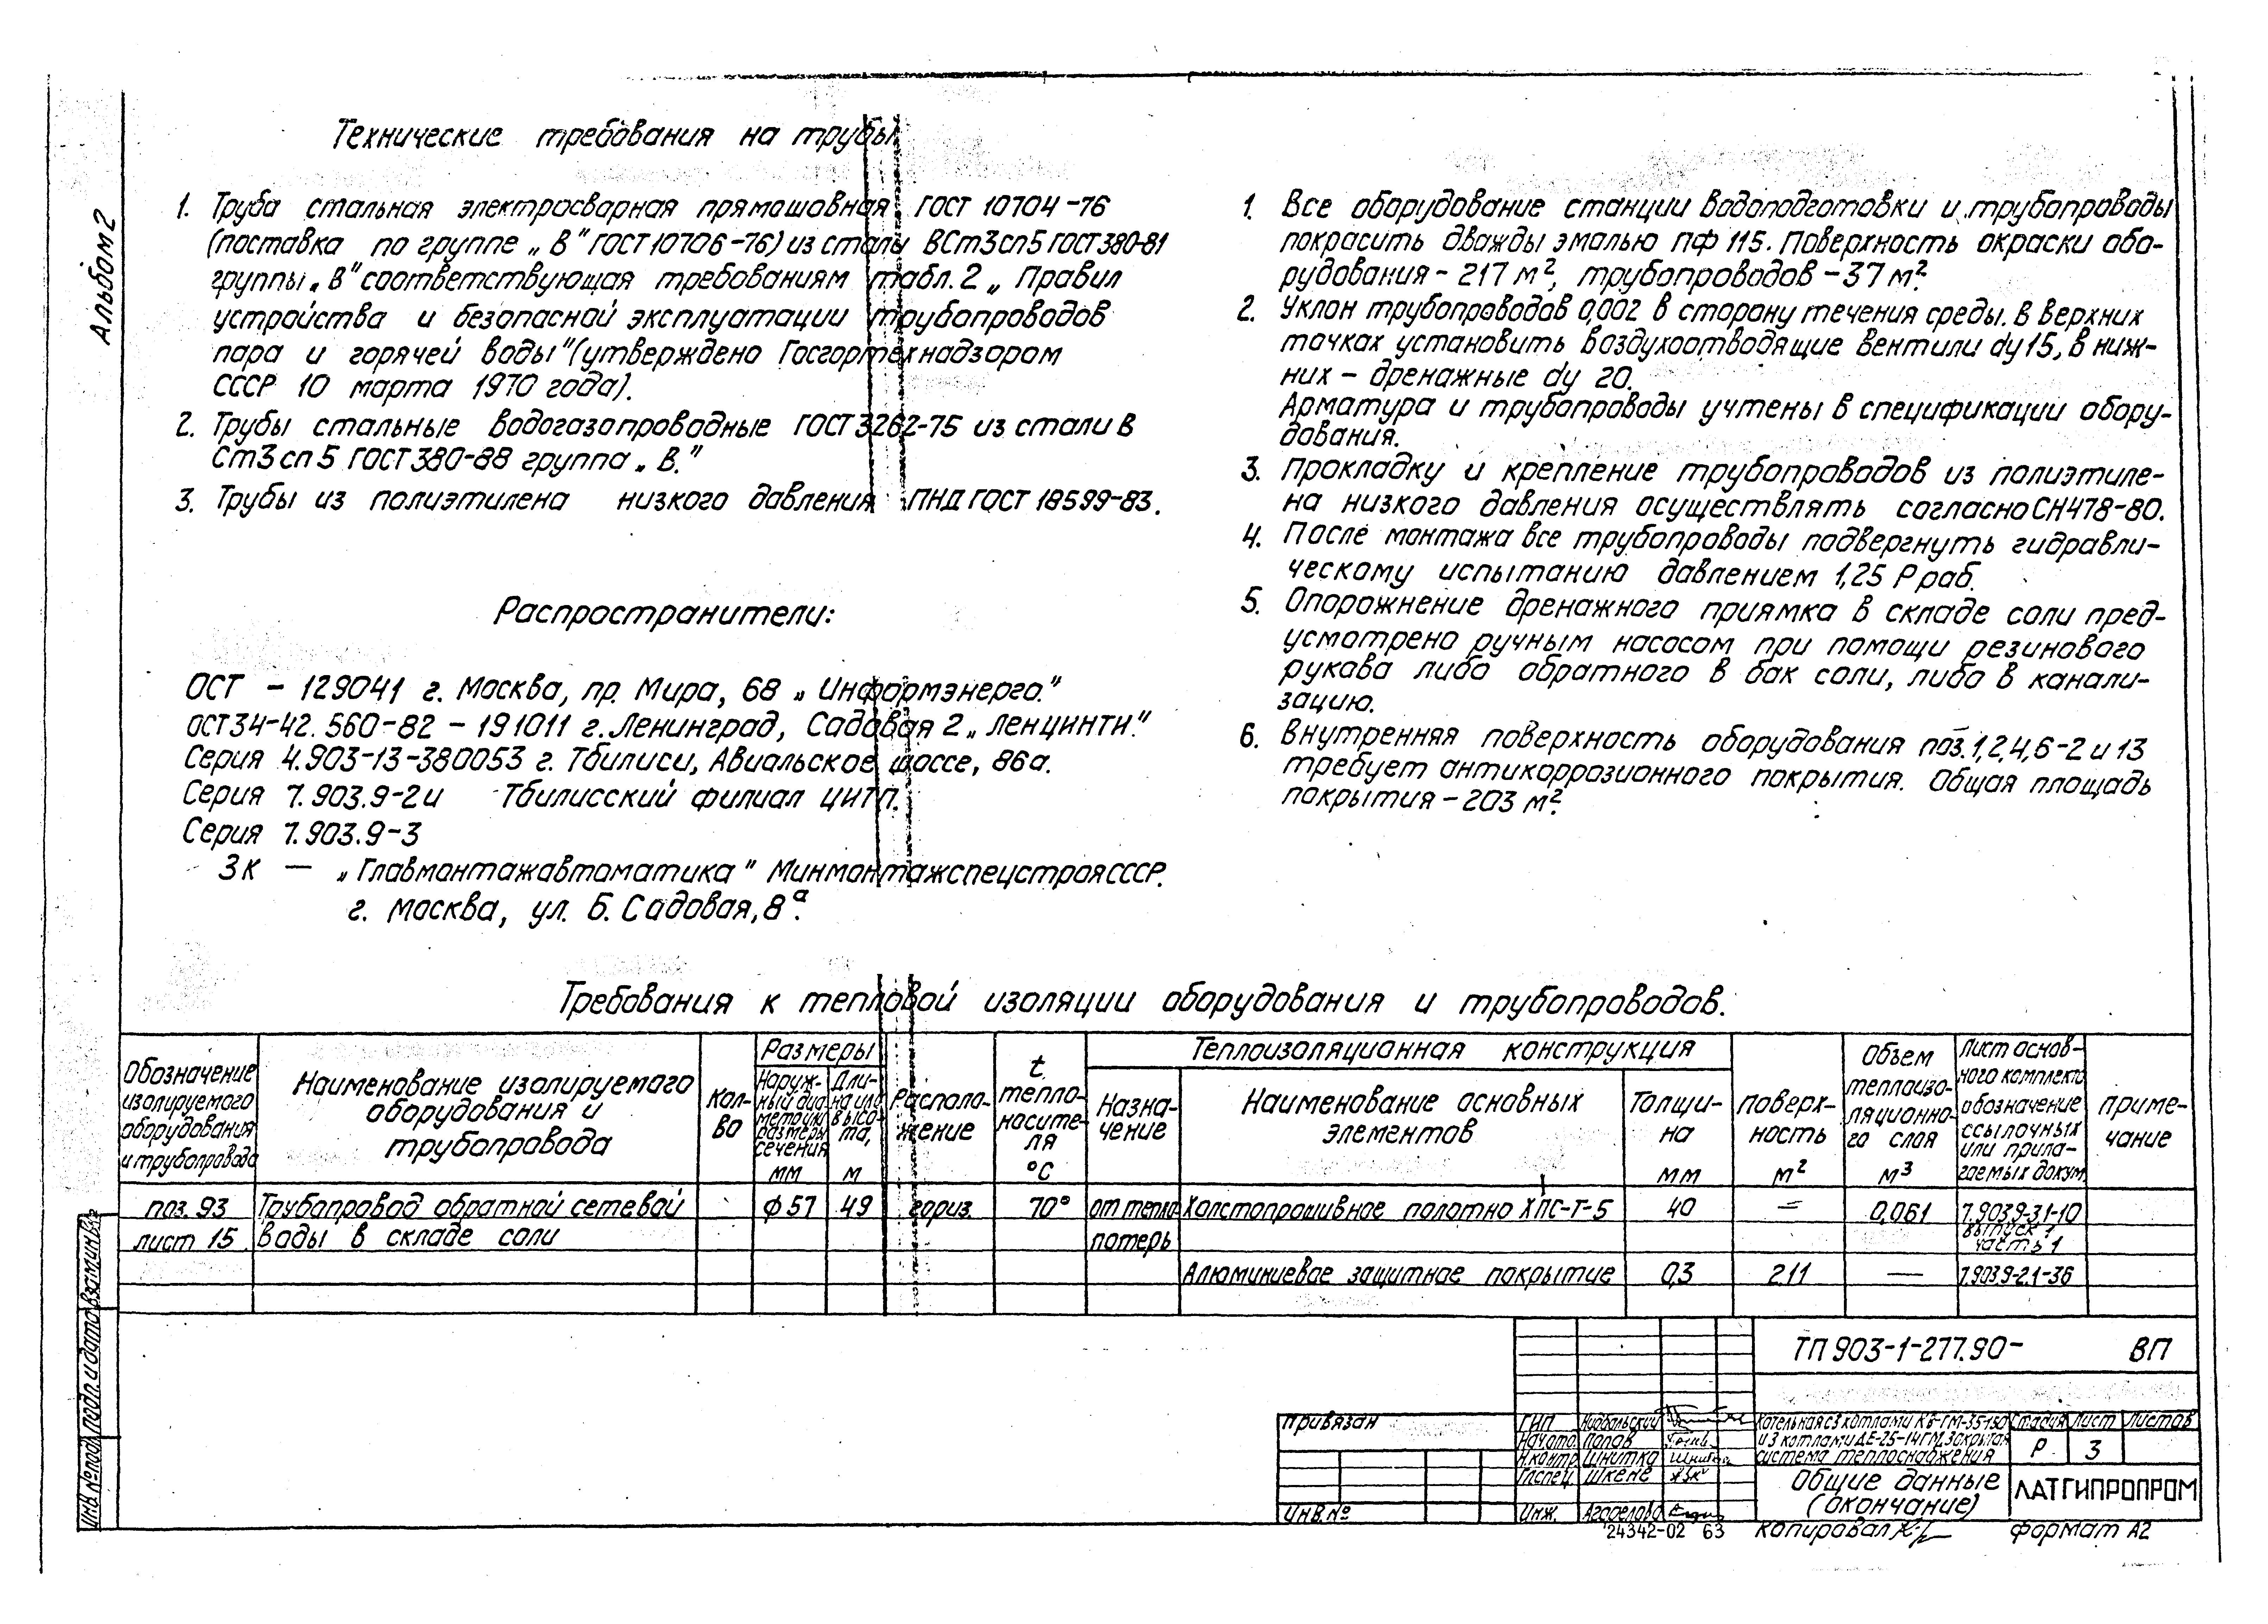 Альбом 2
Технические требования на трубы
1. Труба стальная электросварная прямошовная ГОСТ 10704-76
(поставка по группе „В" ГОСТ 10706-76) из стали ВСт3сп5 ГОСТ 380-81
группы „В" соответствующая требованиям табл. 2 „Правил
устройства и безопасной эксплуатации трубопроводов
пара и горячей воды" (утверждено Госгортехнадзором
СССР 10 марта 1970 года).
2. Трубы стальные водогазопроводные ГОСТ 3262-75 из стали В
Ст3сп5 ГОСТ 380-88 группа „В."
3. Трубы из полиэтилена низкого давления ПНД ГОСТ 18599-83.
Распространители:
ОСТ - 129041 г. Москва, пр. Мира, 68 „Информэнерго."
ОСТ 34-42.560-82 - 191011 г. Ленинград, Садовая 2 „ЛенЦИНТИ."
Серия 4.903-13-380053 г. Тбилиси, Авиальское шоссе, 86а.
Серия 7.903.9-2 и Тбилисский филиал ЦИТП.
Серия 7.903.9-3
ЗК — „Главмонтажавтоматика" Минмонтажспецстроя СССР.
г. Москва, ул. Б. Садовая, 8а.
1. Все оборудование станции водоподготовки и трубопроводы
покрасить дважды эмалью ПФ 115. Поверхность окраски обо-
рудования - 217 м², трубопроводов - 37 м².
2. Уклон трубопроводов 0,002 в сторону течения среды. В верхних
точках установить воздухоотводящие вентили dу 15, в ниж-
них - дренажные dу 20.
Арматура и трубопроводы учтены в спецификации обору-
дования.
3. Прокладку и крепление трубопроводов из полиэтиле-
на низкого давления осуществлять согласно СН 478-80.
4. После монтажа все трубопроводы подвергнуть гидравли-
ческому испытанию давлением 1,25 Р раб.
5. Опорожнение дренажного приямка в складе соли пред-
усмотрено ручным насосом при помощи резинового
рукава либо обратного в бак соли, либо в канали-
зацию.
6. Внутренняя поверхность оборудования поз. 1,2,4,6-2 и 13
требует антикоррозионного покрытия. Общая площадь
покрытия - 203 м².
Требования к тепловой изоляции оборудования и трубопроводов.
Обозначение изолируемого оборудования и трубопровода
Наименование изолируемого оборудования и трубопровода
Кол-во
Размеры
Наруж-ный диаметр или размеры сечения мм
Дли-на или высо-та, м
Располо-жение
t тепло-носите-ля °С
Теплоизоляционная конструкция
Назна-чение
Наименование основных элементов
Толщи-на мм
Поверх-ность м²
Объем теплоизо-ляционно-го слоя м³
Лист основ-ного комплекта обозначение ссылочных или прила-гаемых докум.
Приме-чание
поз. 93 Трубопровод обратной сетевой ф57 49 гориз. 70° от тепло Холстопрошивное полотно ХПС-Т-5 40 — 0,061 7.903.9-3.1-10
лист 15 воды в складе соли потерь выпуск 1
часть 1
Алюминиевое защитное покрытие 0,3 211 — 7.903.9-2.1-36
ТП 903-1-277.90- ВП
Привязан
Инв. №
ГИП
Нач. отд. Попов
Н. контр. Шнитка
Гл. спец. Шкене
Инж.
Котельная с 3 котлами КВ-ГМ-35-150
и 3 котлами ДЕ-25-14ГМ. Закрытая
система теплоснабжения
Стадия Лист Листов
Р 3
Общие данные
(окончание)
ЛАТГИПРОПРОМ
24342-02 63
Копировал
Формат А2
Инв. № подл. Подп. и дата Взам. инв. №